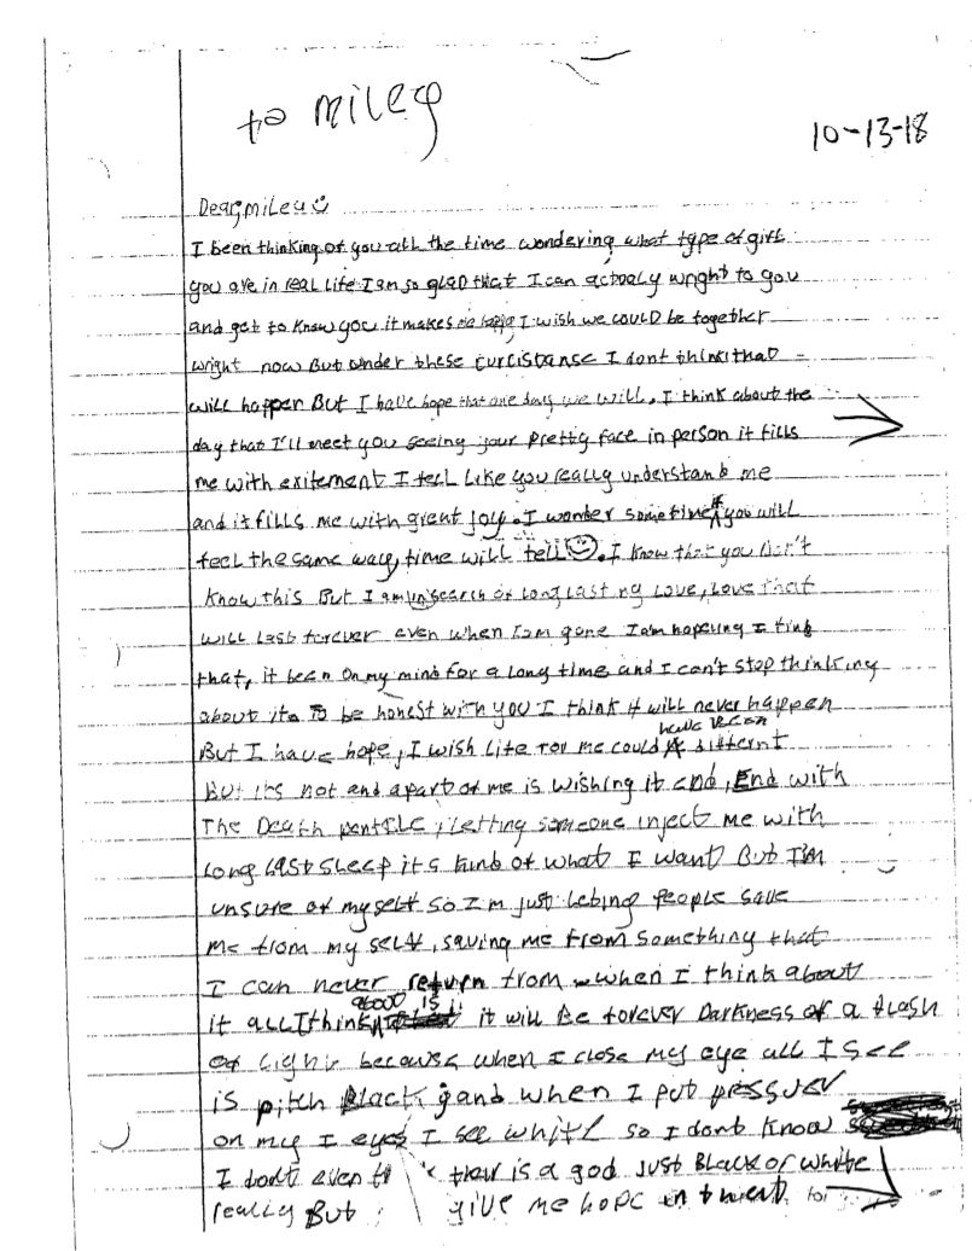 to miley
10-13-18
Dear, miley
I been thinking of you all the time wondering what type of girl
you are in real life I am so glaD that I can actooly wright to you
and get to know you it makes me happy I wish we coulD be together
wright now But under these curcistanse I dont think thaD
will happen But I have hope that one day we will. I think about the
day that I'll meet you seeing your pretty face in person it fills
me with exitement I feel like you really understand me
and it fills me with great joy. I wonder sometime if you will
feel the same way, time will tell. I know that you don't
know this But I am in search of long lasting Love, Love that
will last forever even when I am gone I am hopeing I find
that, it been on my mind for a long time and I can't stop thinking
about it. To be honest with you I think it will never happen
have been
But I have hope, I wish life for me could differnt
But its not and apart of me is wishing it end, End with
The Death , letting someone inject me with
Long last sleep its kind of what I want But I'm
unsure of my self so I'm just leting people save
me from my self, saving me from something that
I can never return from when I think about
about is
it all I think it will Be forever Darkness of a flash
of light because when I close my eye all I see
is pitch Black and when I put pressur
on my I eyes I see white so I dont know
I dont even is a god Just Black or white
really But give me hope in